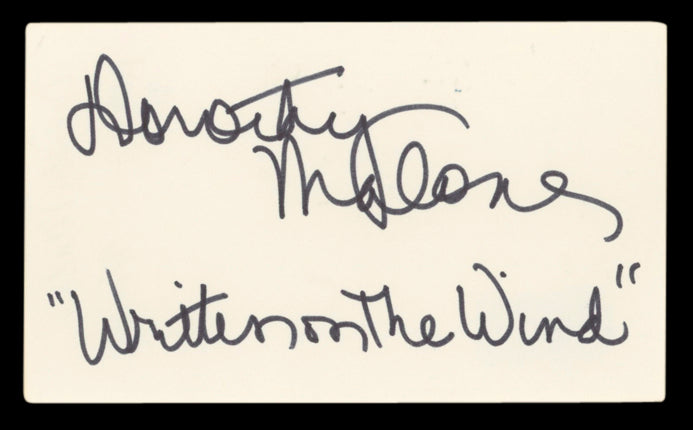 Dorothy
Malone
"Written on The Wind"